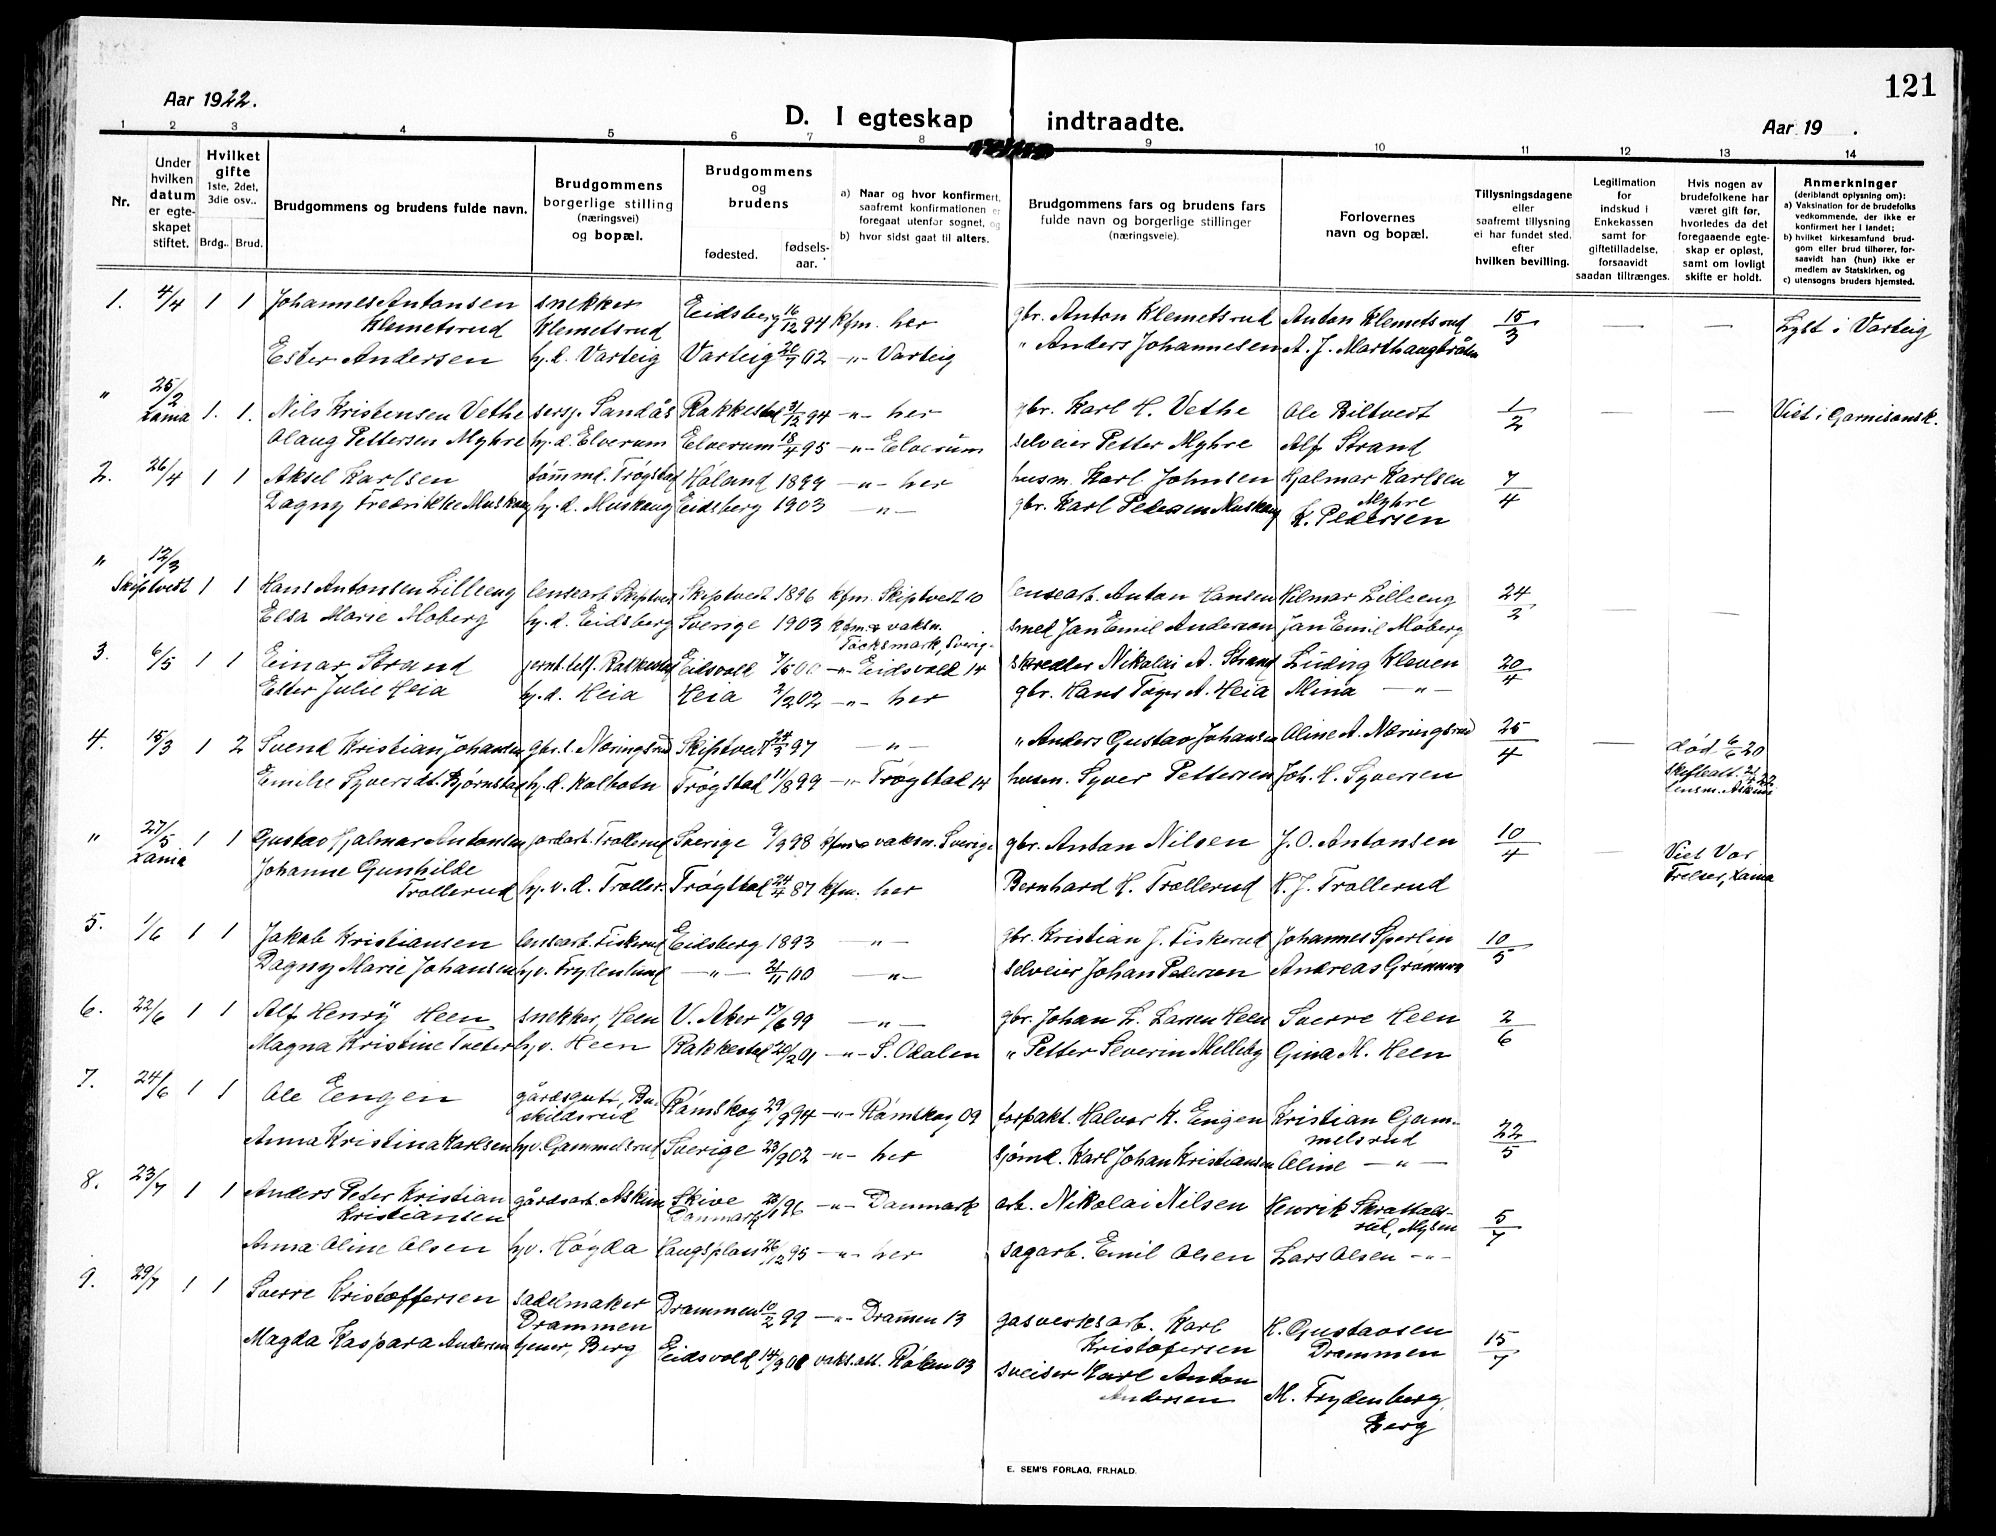 121
Aar 1922.
D. I egteskap indtraadte.
Aar 19 .
1 2 3 4 5 6 7 8 9 10 11 12 13 14
Nr.
Under hvilken datum er egteskapet stiftet.
Hvilket gifte 1ste, 2det, 3die osv..
Brdg.. Brud.
Brudgommens og brudens fulde navn.
Brudgommens borgerlige stilling (næringsvei) og bopæl.
Brudgommens og brudens
fødested. fødsels-aar.
a) Naar og hvor konfirmert, saafremt konfirmationen er foregaat utenfor sognet, og
b) hvor sidst gaat til alters.
Brudgommens fars og brudens fars fulde navn og borgerlige stillinger (næringsveie).
Forlovernes navn og bopæl.
Tillysningsdagene eller saafremt tillysning ei har fundet sted, efter hvilken bevilling.
Legitimation for indskud i Enkekassen samt for giftetilladelse, forsaavidt saadan tiltrænges.
Hvis nogen av brudefolkene har været gift før, hvorledes da det foregaaende egteskap er opløst, samt om lovligt skifte er holdt.
Anmerkninger (deriblandt oplysning om):
a) Vaksination for de brudefolks vedkommende, der ikke er konfirmert her i landet;
b) hvilket kirkesamfund brudgom eller brud tilhører, forsaavidt han (hun) ikke er medlem av Statskirken, og
c) utensogns bruders hjemsted.
1. 4/4 1 1 Johannes Antonsen Klemetsrud snekker Klemetsrud Eidsberg 16/12 94 kfm. her gbr. Anton Klemetsrud Anton Klemetsrud 15/3 — — Lyst i Varteig
Ester Andersen hj. d. Varteig Varteig 02 —"— Varteig " Anders Johannesen A. J. Marthaugbråten
" 25/2 Zama 1. 1. Nils Kristensen Vethe sersj. Sandås Rakkestad 31/12 94 —"— her gbr. Karl H. Vethe Ole Biltvedt 1/2 — — Viet i Garnisonsk.
Olaug Pettersen Myhre hj. d. Elverum Elverum 18/4 95 —"— Elverum selveier Petter Myhre Alf Strand
2. 26/4 1 1 Aksel Karlsen tømmd. Trøgstad Høland 1899 —"— her husm. Karl Johnsen Hjalmar Karlsen Myhre 7/4
Dagny Fredrikke Muskaug hj. d. Muskaug Eidsberg 1903 —"— gbr. Karl Pedersen Muskaug K. Pedersen
" 12/3 Skiptvedt 1 1 Hans Antonsen Lilleeng lensearb. Skiptvedt Skiptvedt 1896 kfm. Skiptvedt 10 lensearb. Anton Hansen Hilmar Lilleeng 24/2 — —
Elsa Marie Moberg hj. d. Eidsberg Sverige 1903 kfm. & vaksn. Töcksmark, Sverig- smed Jan Emil Anderson Jan Emil Moberg
3. 6/5 1 1 Einar Strand jernb.telf. Rakkestad Eidsvold 00 —"— Eidsvold 14 skredder Nikolai A. Strand Ludvig Kleven 20/4
Ester Julie Heia hj. d. Heia Heia 2/2 02 —"— her gbr. Hans A. Heia Mina —"—
4. 15/3 1 2 Svend Kristian Johansen gbr. s. Næringsrud Skiptvedt 24/3 97 —"— " Anders Gustav Johansen Oline A. Næringsrud 25/4 — død 6/6 20
Emilie Syversdt. Bjørnstad hj. d. Kolbotn Trøgstad 11/8 99 —"— Trøgstad 14 husm. Syver Pettersen Joh. H. Syversen skifteatt. 21/4 22 lensm. Askim
" 27/5 Zama 1 1 Gustav Hjalmar Antonsen jordarb. Trollerud Sverige 9/9 98 kfm & vaksn. Sverige gbr. Anton Nilsen J. O. Antonsen 10/4 — Viet Vor Frelser, Zama
Johanne Gunhilde Trollerud hj. v. d. Troller. Trøgstad 24/4 87 kfm. her Bernhard H. Trollerud H. J. Trollerud
5. 1/6 1 1 Jakob Kristiansen lensearb. Fiskerud Eidsberg 1893 —"— gbr. Kristian J. Fiskerud Johannes Sperlin 10/5
Dagny Marie Johansen hj. v. Frydenlund —"— 21/11 00 —"— selveier Johan Pedersen Andreas
6. 22/6 1 1 Alf Henry Heen snekker, Heen V. Aker 17/6 99 —"— gbr. Johan L. Larsen Heen Sverre Heen 2/6
Magna Kristine Tveter hj. v. Heen Rakkestad 20/2 01 —"— S. Odalen " Petter Severin Melleby Gina M. Heen
7. 24/6 1 1 Ole Engen gårdsgut, Buskildsrud Rømskog 29/9 94 —"— Rømskog 09 forpakt. Halvor K. Engen Kristian Gammelsrud 22/5
Anna Kristina Karlsen hj. v. Gammelsrud Sverige 23/9 02 —"— her sjømd. Karl Johan Kristiansen Oline —"—
8. 23/7 1 1 Anders Peter Kristian Kristiansen gårdsarb. Askim Skive Danmark 96 —"— Danmark arb. Nikolai Nilsen Henrik Skrattelsrud, Mysen 5/7
Anna Oline Olsen hj. v. Høgda Haugsplass 26/12 95 —"— her sagarb. Emil Olsen Lars Olsen —"—
9. 29/7 1 1 Sverre Kristoffersen sadelmaker Drammen Drammen 10/2 99 —"— Drammen 13 gasverksarb. Karl Kristofersen H. Gustavsen Drammen 15/7
Magda Kaspara Andersen tjener, Berg Eidsvold 14/9 01 vaks.att. Råken 03 sveiser Karl Anton Andersen M. Frydenberg, Berg
E. SEM'S FORLAG, FR.HALD.